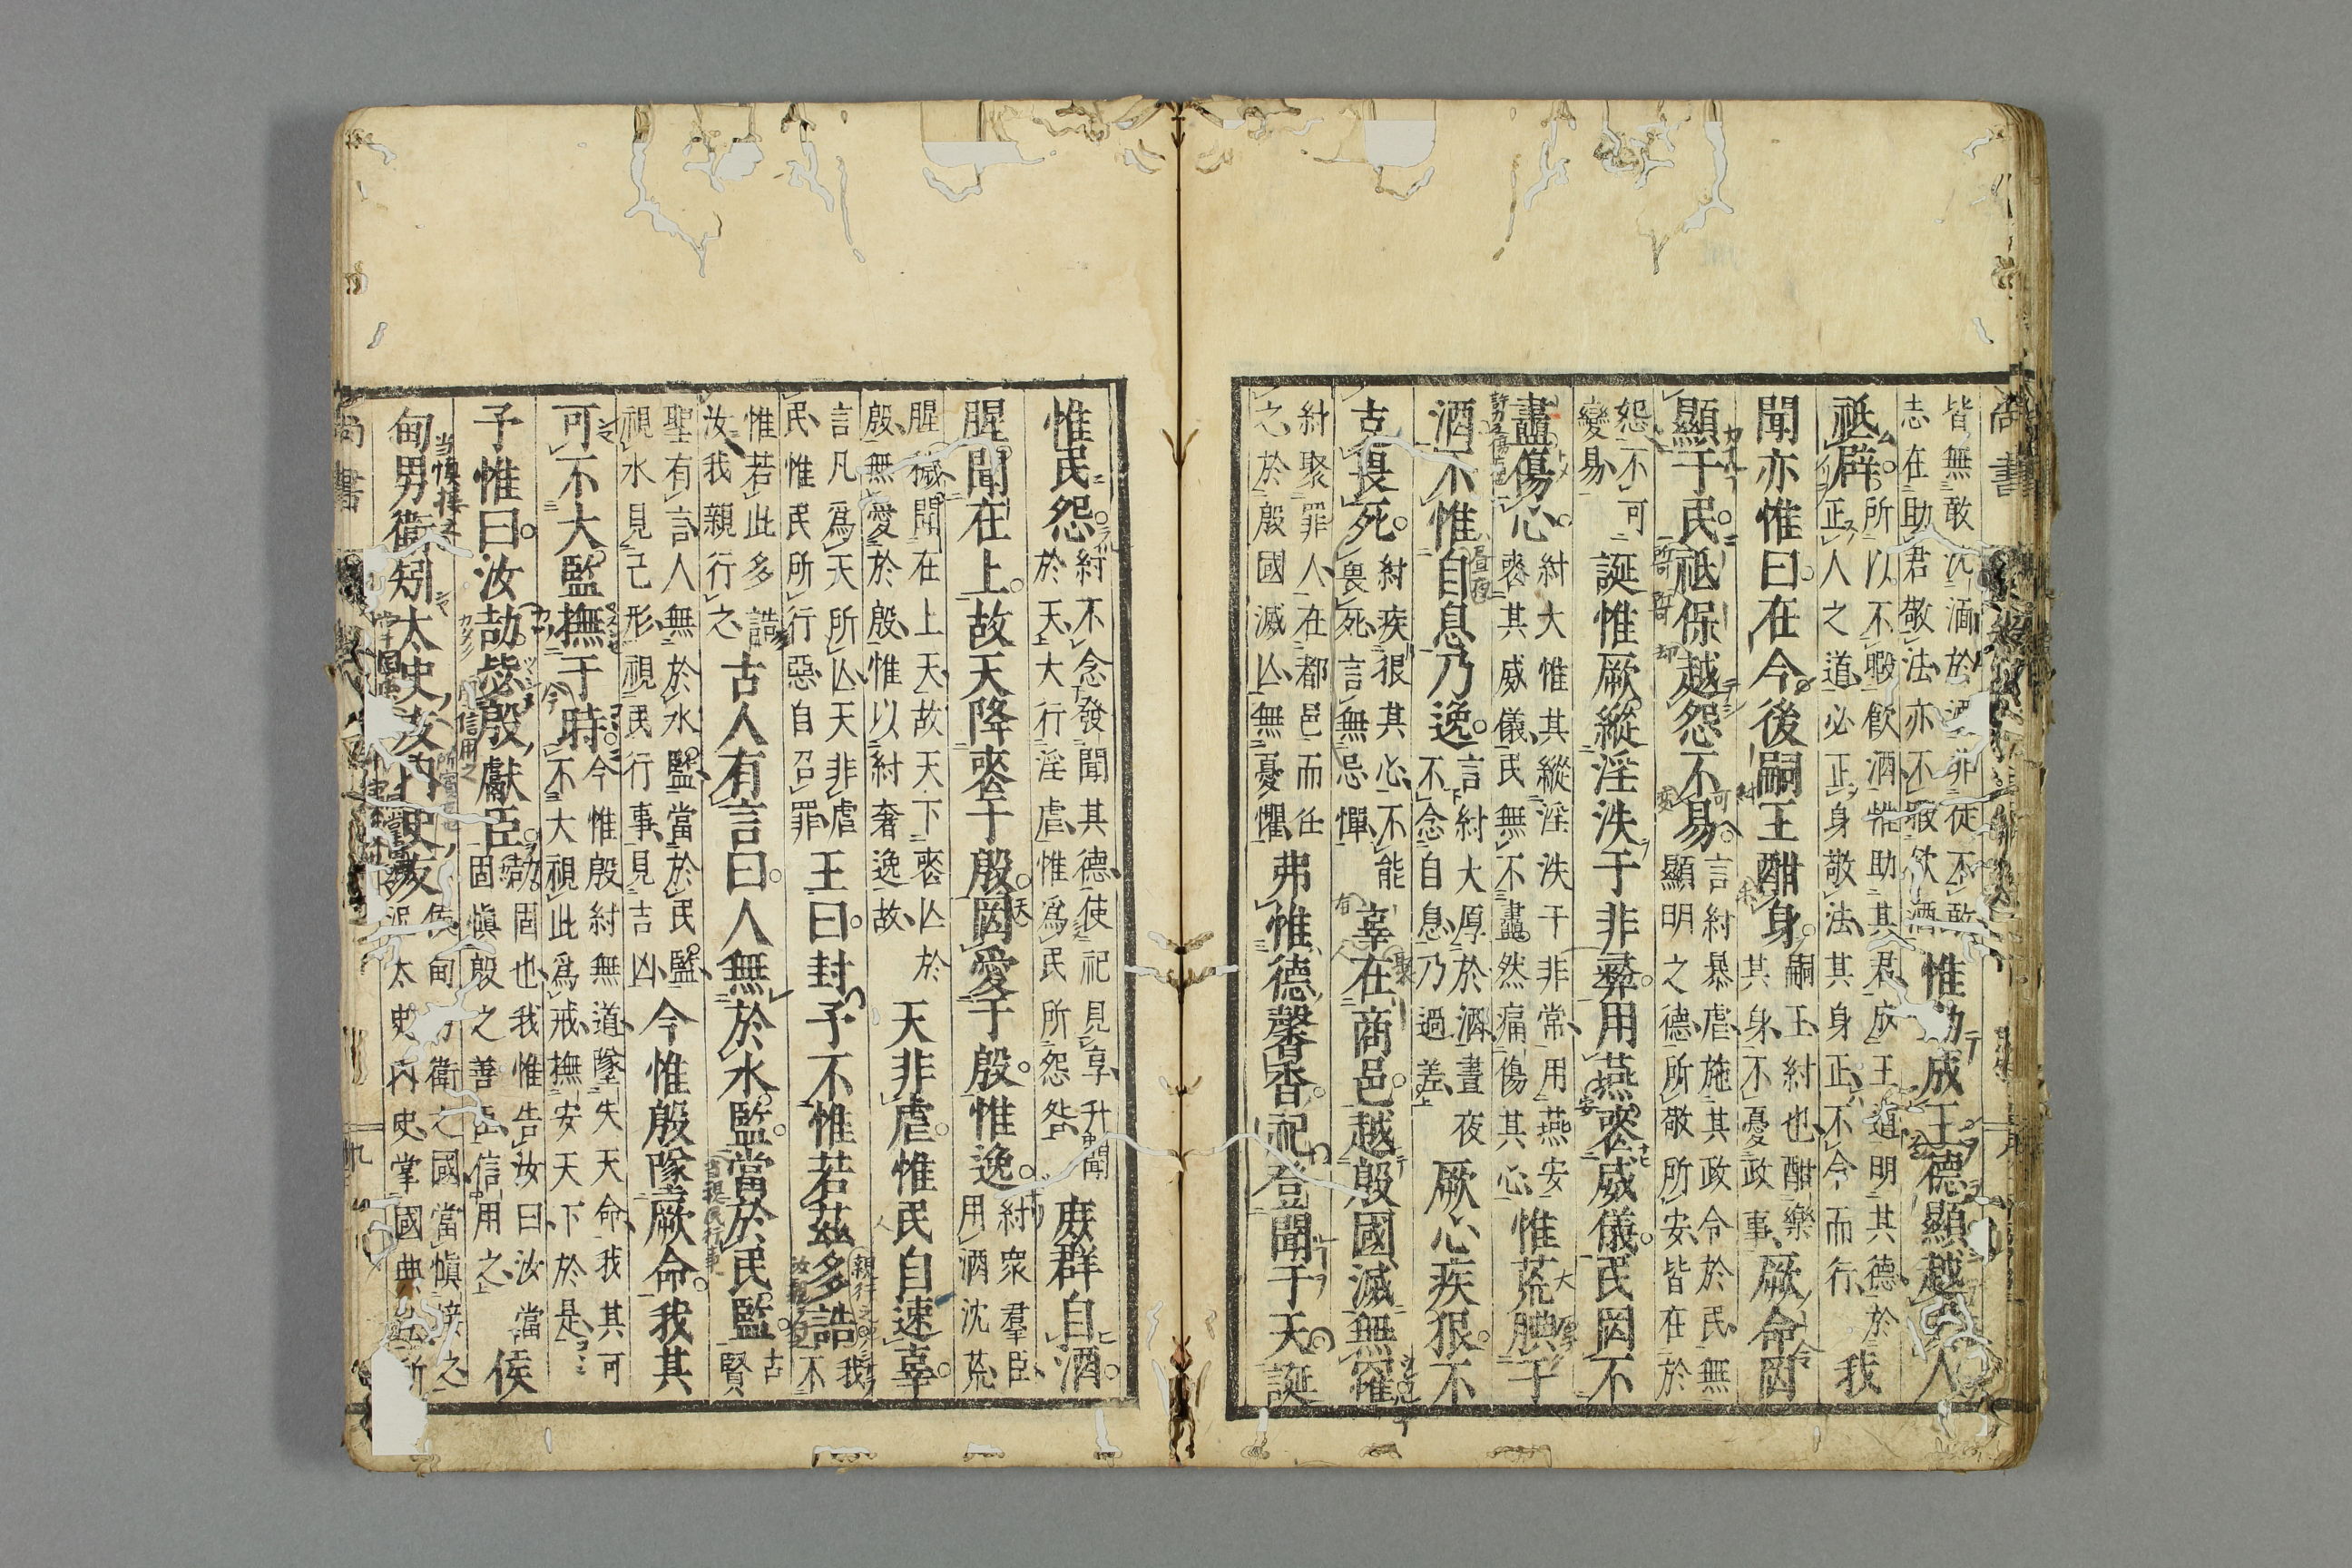 皆無敢沈湎於酒非徒不敢
志在助君敬法亦不暇飲酒
惟助成王德顯越尹人
祗辟所以不暇飲酒惟助其君成王道明其德於
正人之道必正身敬法其身正不令而行
我
聞亦惟曰在今後嗣王酣身嗣王紂也酣樂
其身不憂政事
厥命罔
顯于民祗保越怨不易言紂暴虐施其政令於民無
顯明之德所敬所安皆在於
怨不可
變易
誕惟厥縱淫泆于非彝用燕喪威儀民罔不
衋傷心紂大惟其縱淫泆于非常用燕安
喪其威儀民無不衋然痛傷其心
惟荒腆于
酒不惟自息乃逸言紂大厚於酒晝夜
不念自息乃過差
厥心疾狠不
克畏死紂疾狠其心不能
畏死言無忌憚
辜在商邑越殷國滅無罹
紂聚罪人在都邑而任
之於殷國滅亾無憂懼
弗惟德馨香祀登聞于天誕
惟民怨紂不念發聞其德使祀見享升聞
於天大行淫虐惟爲民所怨咎
庶群自酒
腥聞在上故天降喪于殷罔愛于殷惟逸紂衆羣臣
用酒沈荒
腥穢聞在上天故天下喪亾於
殷無愛於殷惟以紂奢逸故
天非虐惟民自速辜
言凡爲天所亾天非虐
民惟民所行惡自召罪
王曰封予不惟若茲多誥我不
惟若此多誥
汝我親行之
古人有言曰人無於水監當於民監古賢
聖有言人無於水監當於民監
視水見己形視民行事見吉凶
今惟殷隊厥命我其
可不大監撫于時今惟殷紂無道墜失天命我其可
不大視此爲戒撫安天下於是
予惟曰汝劼毖殷獻臣劼固也我惟告汝曰汝當
固慎殷之善臣信用之
侯
甸男衛矧太史友內史友侯甸男衛之國當慎接之
況太史內史掌國典